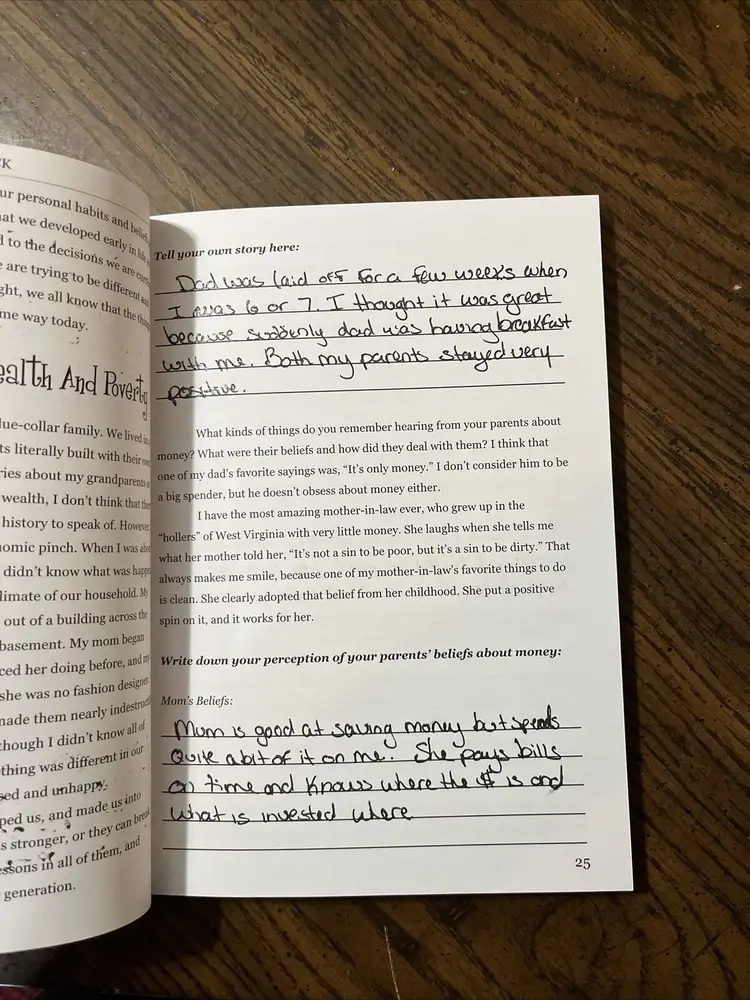 CK
ur personal habits and
at we developed early in
d to the decisions we are
e are trying to be different and
ght, we all know that the
me way today.
ealth And Poverty
lue-collar family. We lived in
ts literally built with their
ries about my grandparents
wealth, I don't think that
history to speak of. However,
nomic pinch. When I was
didn't know what was
limate of our household. My
out of a building across the
basement. My mom began
ced her doing before, and
she was no fashion designer
made them nearly
though I didn't know all of
thing was different in our
sed and unhappy.
ped us, and made us into
s stronger, or they can break
essons in all of them, and
generation.
Tell your own story here:
Dad was laid off for a few weeks when
I was 6 or 7. I thought it was great
because suddenly dad was having breakfast
with me. Both my parents stayed very
positive.
What kinds of things do you remember hearing from your parents about
money? What were their beliefs and how did they deal with them? I think that
one of my dad's favorite sayings was, “It's only money.” I don't consider him to be
a big spender, but he doesn't obsess about money either.
I have the most amazing mother-in-law ever, who grew up in the
“hollers” of West Virginia with very little money. She laughs when she tells me
what her mother told her, “It's not a sin to be poor, but it's a sin to be dirty.” That
always makes me smile, because one of my mother-in-law's favorite things to do
is clean. She clearly adopted that belief from her childhood. She put a positive
spin on it, and it works for her.
Write down your perception of your parents' beliefs about money:
Mom's Beliefs:
Mum is good at saving money but spends
Quite a bit of it on me. She pays bills
on time and knows where the $ is and
what is invested where
25